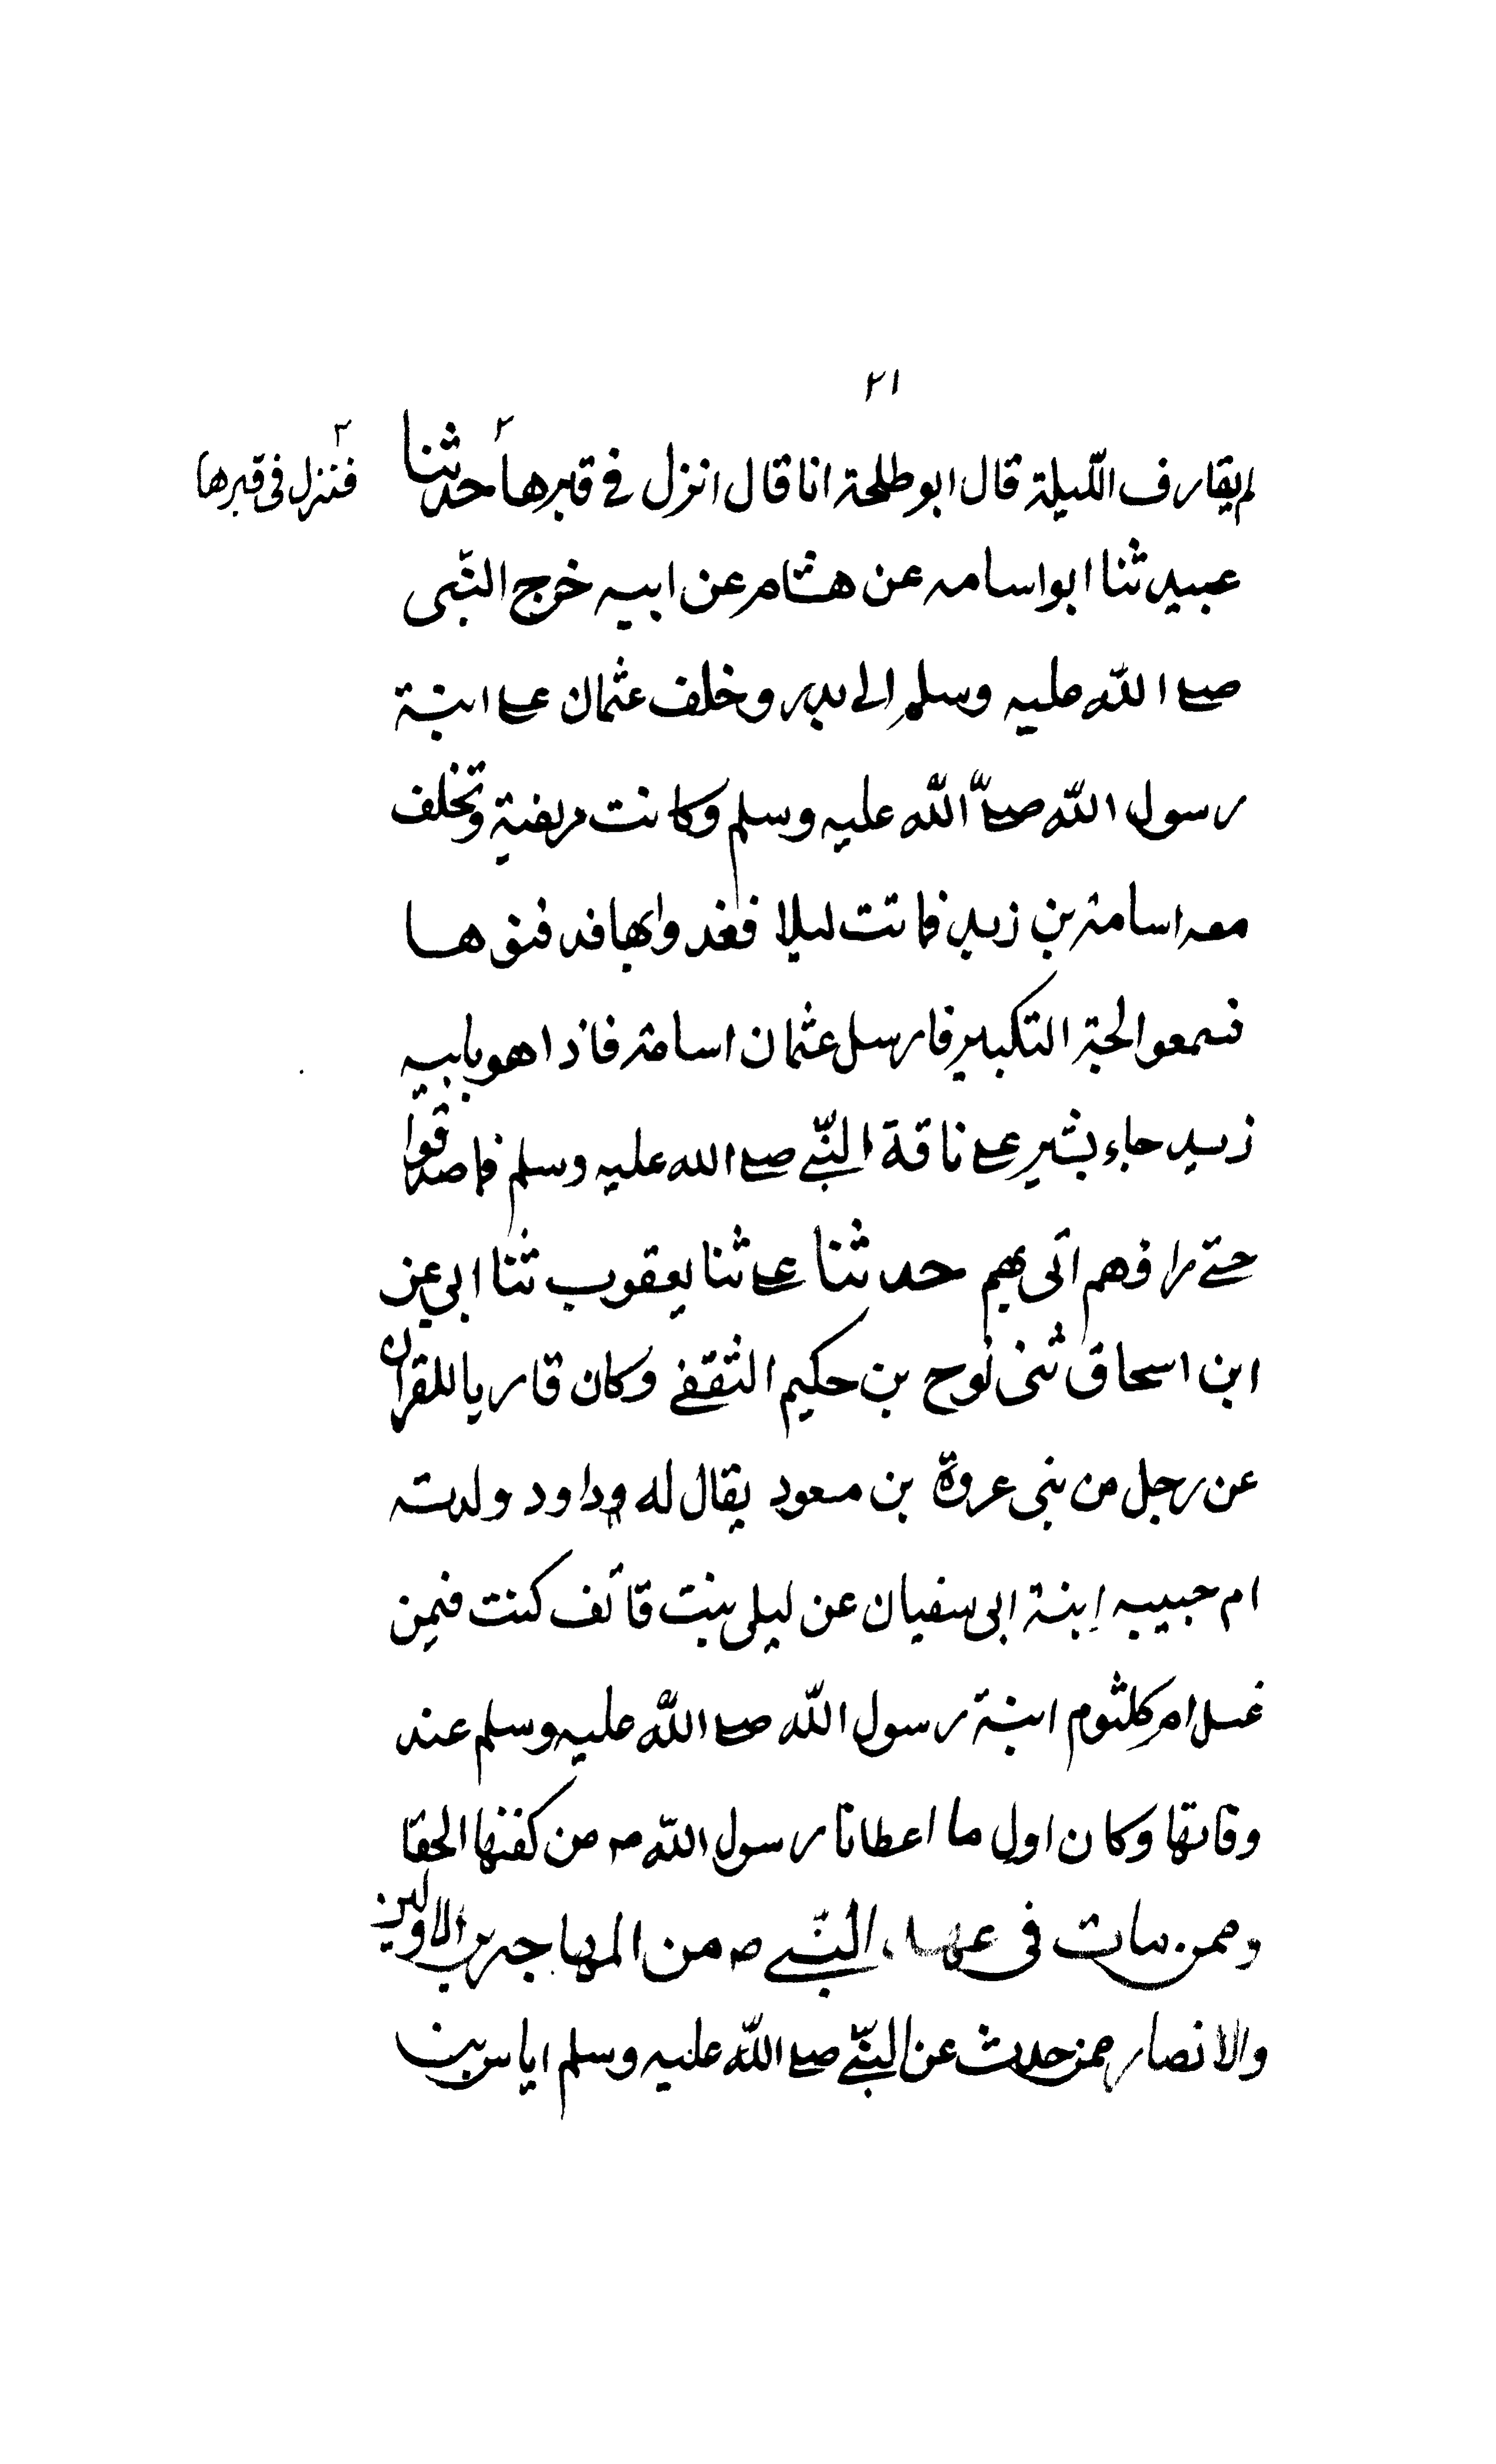 ٢١
لم يقارف الليلة قال ابو طلحة انا قال انزل في قبرها٢ حدثنا
٣ فنزل في قبرها
عبيد ثنا ابو اسامه عن هشام عن ابيه خرج النبي
صلى الله عليه وسلم الى بدر وخلف عثمان على ابنة
رسول الله صلى الله عليه وسلم وكانت مريضة وتخلف
معه اسامة بن زيد فماتت ليلا فغدوا بها فدفنوها
فسمعوا لجة التكبير فارسل عثمان اسامة فاذا هو بابيه
زيد جاء بشير على ناقة النبي صلى الله عليه وسلم فما صدقوا
حتى رافهم اتى بهم حدثنا على ثنا يعقوب ثنا ابي عن
ابن اسحاق ثنى نوح بن حكيم الثقفي وكان قاريا للقران
عن رجل من بني عروة بن مسعود يقال له داود ولدته
ام حبيبه ابنة ابي سفيان عن ليلى بنت قائف كنت فيمن
غسل ام كلثوم ابنة رسول الله صلى الله عليه وسلم عند
وفاتها وكان اول ما اعطانا رسول الله ص من كفنها الحقا
وممن مات في عهد النبي ص من المهاجرين الاولين
والانصار ممن حدث عن النبي صلى الله عليه وسلم اياس بن